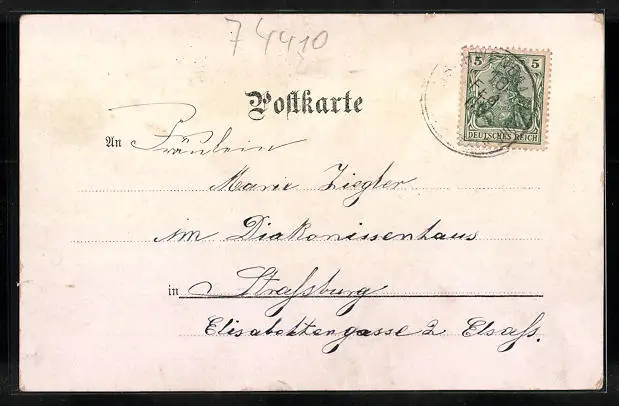 74410
5 5
DEUTSCHES REICH
Postkarte
An Fräulein
Marie Ziegler
im Diakonissenhaus
in Strassburg
Elisabettengasse 2 Elsass.